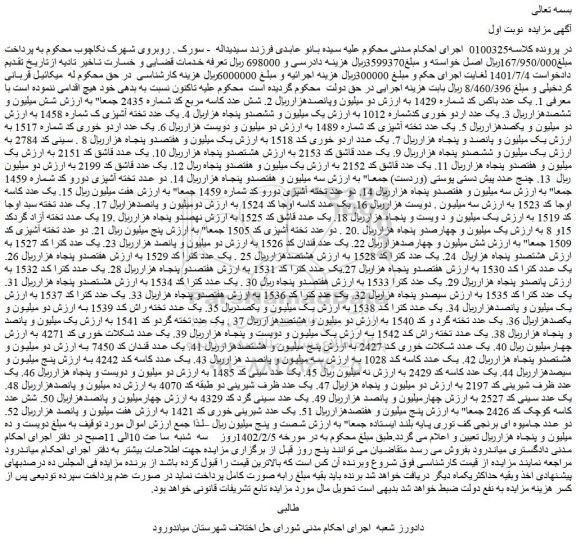 بسمه تعالی
آگهی مزایده نوبت اول
در پرونده کلاسه0100325 اجرای احکام مدنی محکوم علیه سیده بانو عابدی فرزند سیدیداله - سورک . روبروی شهرک نکاچوب محکوم به پرداخت
مبلغ167/950/000ریال اصل خواسته و مبلغ3599370ریال هزینه دادرسی و 698000 ریال تعرفه خدمات قضایی و خسارت تاخیر تادیه ازتاریخ تقدیم
دادخواست 1401/7/4 لغایت اجرای حکم و مبلغ 300000ریال هزینه اجرائیه و مبلغ 6000000ریال هزینه کارشناسی در حق محکوم له میکائیل قربانی
کردخیلی و مبلغ 8/460/396 ریال بابت هزینه اجرایی در حق دولت محکوم گردیده است محکوم علیه تاکنون نسبت به بدهی خود هیچ اقدامی ننموده است با
معرفی 1. یک عدد باکس کد شماره 1429 به ارزش دو میلیون وپانصدهزارریال 2. شش عدد کاسه مربع کد شماره 2435 جمعا" به ارزش شش میلیون و
ششصدهزارریال 3. یک عدد اردو خوری کدشماره 1012 به ارزش یک میلیون و ششصدو پنجاه هزارریال 4. یک عدد تخته آشپزی ک شماره 1458 به ارزش
دو میلیون و یکصدهزارریال 5. یک عدد تخته آشپزی کد شماره 1489 به ارزش دو میلیون و دویست هزارریال 6. یک عدد اردو خوری کد شماره 1517 به
ارزش یک میلیون و پانصد و پنجاه هزارریال 7. یک عدد اردو خوری کد 1518 به ارزش یک میلیون و هفتصدو پنجاه هزارریال 8 . سینی کد 2784 به
ارزش یک میلیون و ششصدو پنجاه هزارریال 9. یک عدد قاشق کد 2153 به ارزش هشتصدو پنجاه هزارریال 10. یک عدد قاشق کد 2151 به ارزش یک
میلیون و هفتصدو پنجاه هزارریال 11. یک عدد قاشق کد 2152 به ارزش یک میلیون و هفتصدو پنجاه ریال 12. یک عدد قاشق کد 2199 به ارزش دو میلیون
ریال 13. چنج عدد پیش دستی پوستی (وردست) جمعا" به ارزش سه میلیون و هفتصدو پنجاه هزارریال 14. دو عدد تخته آشپزی دورو کد شماره 1459
جمعا" به ارزش سه میلیون و هفتصدو پنجاه هزارریال 14. دو عدد تخته آشپزی دورو کد شماره 1459 جمعا" به ارزش هفت میلیون ریال 15. یک عدد کاسه
اوجا کد 1523 به ارزش سه میلیون . دویست هزارریال 16. یک عدد کاسه اوجا کد 1524 به ارزش دومیلیون و پانصدهزارریال 17. یک عدد تخته سبد اوجا
کد 1519 به ارزش یک میلیون و د ویست و پنجاه هزارریال 18. یک عدد قاشق کد 1525 به ارزش نهصدو پنجاه هزارریال .19 یک عدد تخته آزاد گردکد
15و 8 به ارزش یک میلیون و چهارصدو پنجاه هزارریال .20 . دو عدد تخته آشپزی کد 1505 جمعا" به ارزش پنج میلیون ریال 21. دو عدد تخته آشپزی کد
1509 جمعا" به ارزش شش میلیون و چهارصدهزارریال 22. یک عدد قندان کد 1526 به ارزش دو میلیون و پانصد هزارریال 23. یک عدد کترا کد 1527 به
ارزش هشتصدو پنجاه هزارریال 24. یک عدد کترا کد 1528 به ارزش هشتصدهزارریال 25 . یک عدد کترا کد 1529 به ارزش هفتصدو پنجاه هزارریال 26.
یک عدد کترا کد 1530 به ارزش هفتصدو پنجاه هزارریال 27.یک عدد کترا کد 1531 به ارزش هفتصدو پنجاه هزارریال 28. یک عدد کترا کد 1532 به
ارزش پانصدو پنجاه هزارریال 29. یک عدد کترا 1533 به ارزش هفتصدو پنجاه ریال 30 . یک عدد کترا کد 1534 به ارزش هشتصدو پنجاه هزارریال 31.
یک عدد کترا کد 1535 به ارزش سیصدو پنجاه هزارریال 32. یک عدد کترا کد 1536 به ارزش هفتصدو پنجاه هزارریال 33. یک عدد کترا کد 1537 به ارزش
یک میلیون و پانصدهزارریال 34. یک عدد کترا کد 1538 به ارزش یک میلیون و یکصدریال 35. یک عدد تخته راش کد 1539 به ارزش دو میلیون و
یکصدهزارریال 36. یک عدد تخته گرد و کد 1540 به ارزش دو میلیون و هشتصدهزارریال 37 . یک عدد تخته گردو کد 1541 به ارزش یک میلیون و پانصد
و پنجاه هزارریال 38. یک عدد تخته راش کد 1542 به ارزش یک میلیون و دویست و پنجاه هزارریال 39. یک عدد شکلات خوری کد 4271 به ارزش
چهارمیلیون ریال 40. یک عدد شکلات خوری کد 2427 به ارزش پنج میلیون و هشتصدهزارریال 41. یک عدد قندان کد 7450 به ارزش دو میلیون و
هشتصدو پنجاه هزارریال 42. یک عدد کاسه کد 1028 به ارزش سه میلیون و پانصد هزارریال 43. یک عدد کاسه کد 4242 به ارزش پنج میلیون و
سیصدهزارریال 44. یک عدد کاسه کد 2429 به ارزش نه میلیون ریال 45. یک عدد کاسه کد 1485 به ارزش دو میلیون و دویست و پنجاه هزارریال 46. یک
عدد ظرف شیرینی کد 2197 به ارزش دو میلیون و پنجاه هزارریال 47. یک عدد ظرف شیرینی دو طبقه کد 4070 به ارزش ده میلیون و پانصدهزارریال 48.
یک عدد سینی کد 2527 به ارزش چهارمیلیون و پانصدهزارریال 49. یک عدد سینی گرد کد 4329 به ارزش چهارمیلیون و پانصدهزارریال 50. شش عدد
کاسه کوچک کد 2426 جمعا" به ارزش پنج میلیون و هفتصدهزارریال 51. یک عدد شیرینی خوری کد 1421 به ارزش هفت میلیون و پانصد هزارریال 52.
دو عدد جامیوه ای برنجی کف توری پایه بلند ایستاده جمعا" به ارزش شصت و پنج میلیون ریال –لذا جمع ارزش اموال مورد توقیف به مبلغ دویست و ده
میلیون و پنجاه هزارریال تعیین و اعلام می گردد.طبق مبلغ محکوم به در مورخه 1402/2/5روز سه شنبه ساعت 10الی 11صبح در دفتر اجرای احکام
مدنی دادگستری میاندرود بفروش می رسد متقاضیان می توانند پنج روز قبل از برگزاری مزایده جهت اطلاعات بیشتر به دفتر اجرای احکام میاندرود
مراجعه نمایند مزایده از قیمت کارشناسی فوق شروع وبرنده آن کس است که بالاترین قیمت را قبول کرده باشد از برنده مزایده فی المجلس ده درصدبهای
پیشنهادی اخذ وبقیه حداکثریکماه دیگر دریافت خواهد شد برنده باید بقیه مبلغ رابه صورت کامل پرداخت نماید در صورت عدم پرداخت سپرده تودیعی پس از
کسر هزینه مزایده به نفع دولت ضبط خواهد شد بدیهی است تحویل مال مورد مزایده تابع تشریفات قانونی خواهد بود.
طالبی
دادورز شعبه اجرای احکام مدنی شورای حل اختلاف شهرستان میاندورود